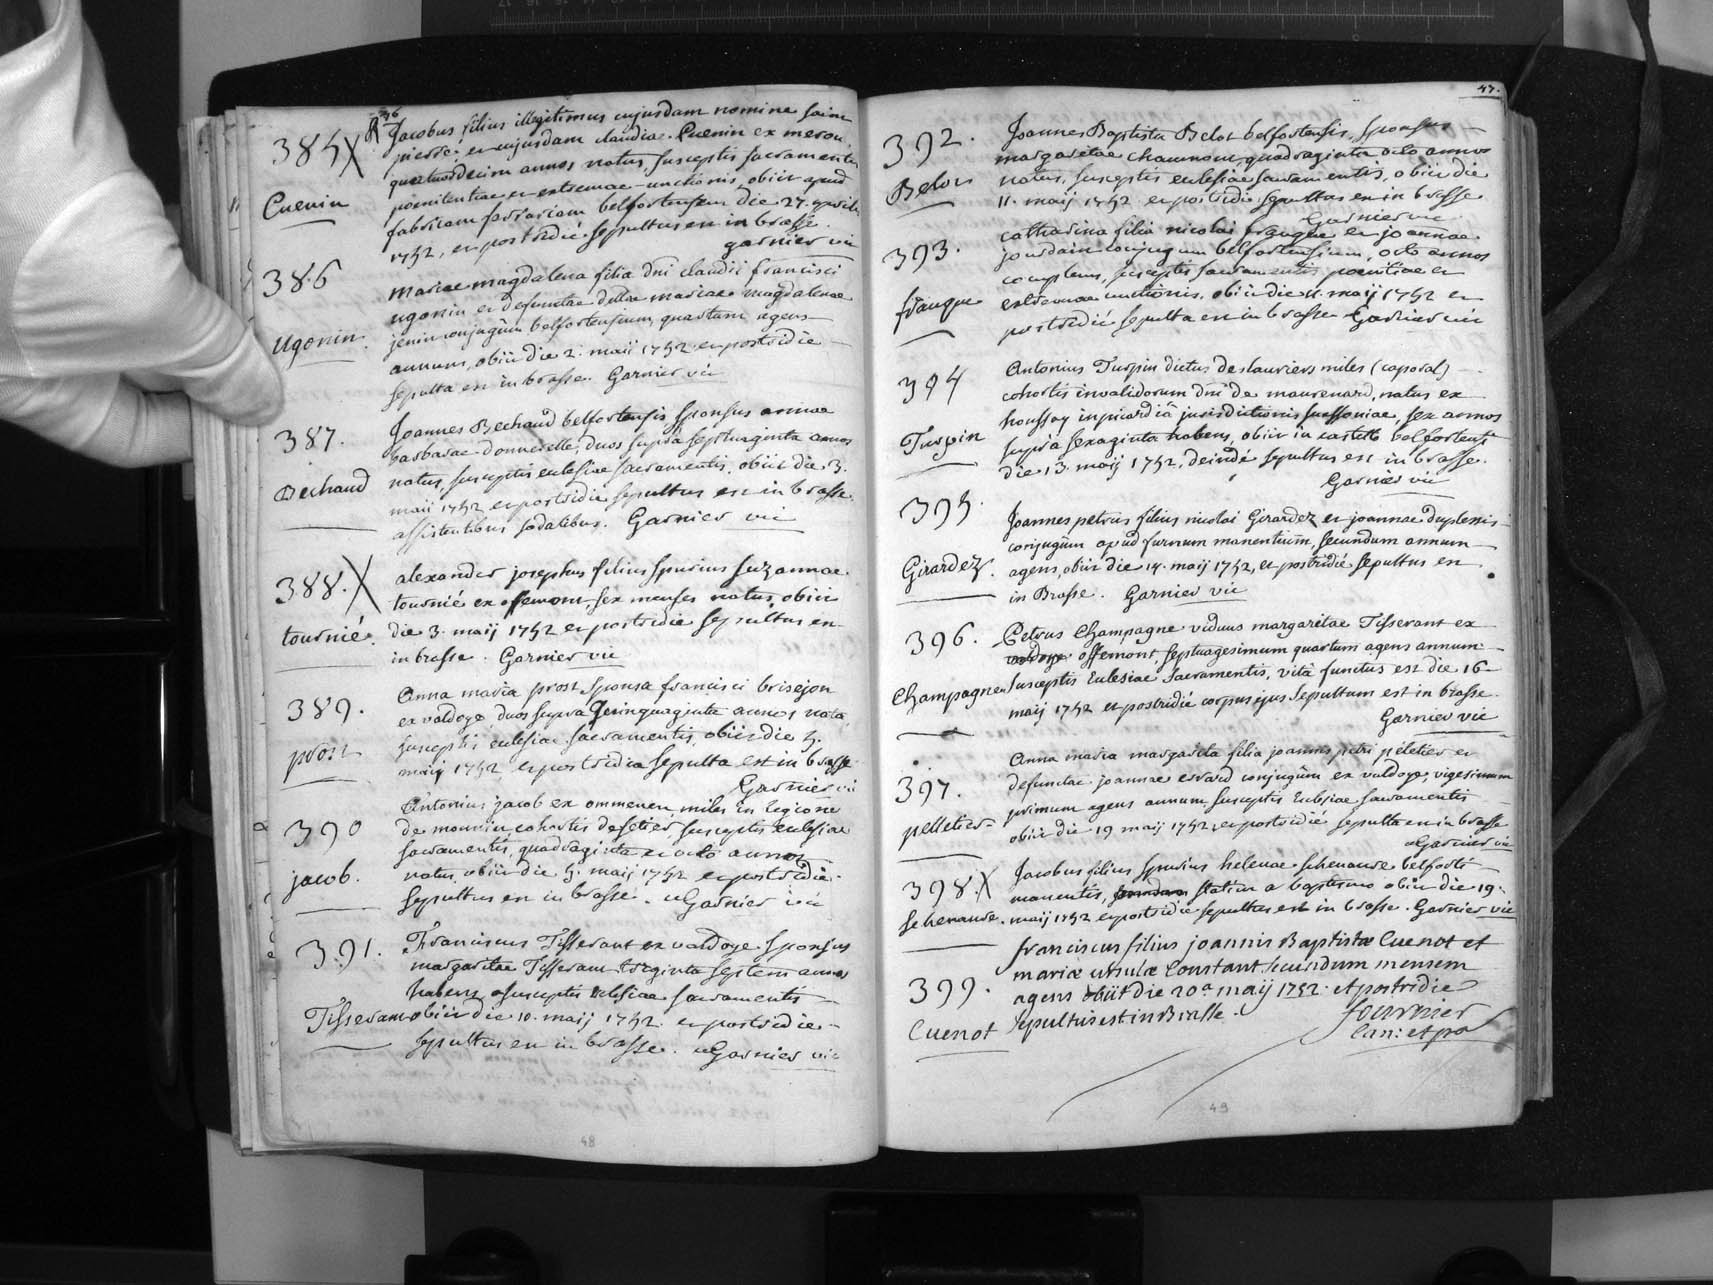 46
385 X
Cuenin
Jacobus filius illegitimus cujusdam nomine saint
pierre, et cujusdam claudiae Cuenin ex merou,
quatuordecim annos natus, susceptis sacramentis
poenitentiae et extremae-unctionis, obiit apud
fabricam ferrariam belfortensem die 27. aprilis
1752, et postridié sepultus est in brasse.
garnier vic
386
Ugonin.
Mariae magdalena filia dni claudii francisci
ugonin et defunctae dllae mariae magdalenae
jenin conjugum belfortensium, quartum agens
annum, obiit die 2. maii 1752 et postridie
sepulta est in brasse. Garnier vic
387.
Bechaud
Joannes Bechaud belfortensis sponsus annae
barbarae donnezelle, duos suprà septuaginta annos
natus, susceptis eclesiae sacramentis, obiit die 3.
maii 1752 et postridie sepultus est in brasse
assistentibus sodalibus. Garnier vic
388. X
tournié.
alexander josephus filius spurius suzannae
tournié ex offemont, sex menses natus, obiit
die 3. maij 1752 et postridie sepultus est
in brasse. Garnier vic
389.
prost
Anna maria prost sponsa francisci brisejon
ex valdoye, duos supra quinquaginta annos nata,
susceptis eclesiae sacramentis, obiit die 5.
maij 1752 et postridia sepulta est in brasse
Garnier vic
390
jacob.
Antonius jacob ex ommenen miles in legione
de monnin cohortis desetier susceptis Eclesiae
sacramentis, quadraginta et octo annos
natus, obiit die 5. maij 1752 et postridie
sepultus est in brasse. Garnier vic
391.
Tisserant
Franciscus Tisserant ex valdoye sponsus
margaritae Tisserant triginta septem annos
habens, susceptis eclesiae sacramentis
obiit die 10. maij 1752. et postridie
sepultus est in brasse. Garnier vic
48
47.
392.
Belot
Joannes Baptista Belot belfortensis, sponsus
margaritae chaumont, quadraginta octo annos
natus, susceptis eclesiae sacramentis, obiit die
11. maij 1752 et postridie sepultus est in brasse
Garnier vic
393.
frangue
catharina filia nicolai frangue et joannae
jourdain conjugum belfortensium, octo annos
complens, susceptis sacramentis poenitiae et
extremae unctionis, obiit die 11. maij 1752 et
postridié sepulta est in brasse Garnier vic
394
Turpin
Antonius Turpin dictus deslauriers miles (caporal)
cohortis invalidorum dni de maurenard, natus ex
houssoy in picardiâ jurisdictionis suessoniae, sex annos
suprà sexaginta habens, obiit in castello belfortensi
die 13. maij 1752, deindé sepultus est in brasse.
Garnier vic
395.
Girardez.
Joannes petrus filius nicolai Girardez et joannae duplessis
conjugûm apud furnum manentium, secundum annum
agens, obiit die 14. maij 1752, et postridié sepultus est
in Brasse. Garnier vic
396.
Champagne
Petrus Champagne viduus margaritae Tisserant ex
valdoye offemont, septuagesimum quartum agens annum
susceptis Eclesiae sacramentis, vitâ functus est die 16
maij 1752 et postridié corpus ejus sepultum est in brasse.
Garnier vic
397.
pelletier
Anna maria margarita filia joannis petri péletier et
defunctae joannae evrard conjugûm ex valdoye, vigesimum
primum agens annum, susceptis Eclesiae sacramentis
obiit die 19 maij 1752, et postridié sepulta est in brasse
Garnier vic
398. X
schenaude.
Jacobus filius spurius helenae schenaude belforti
manentis, statim a baptismo obiit die 19.
maij 1752 et postridie sepultus est in brasse. Garnier vic
399.
Cuenot
franciscus filius joannis Baptistæ Cuenot et
mariæ ursulæ Constant secundum mensem
agens obiit die 20a maij 1752. et postridie
sepultus est in Brasse.
fournier
Can: et pr
49